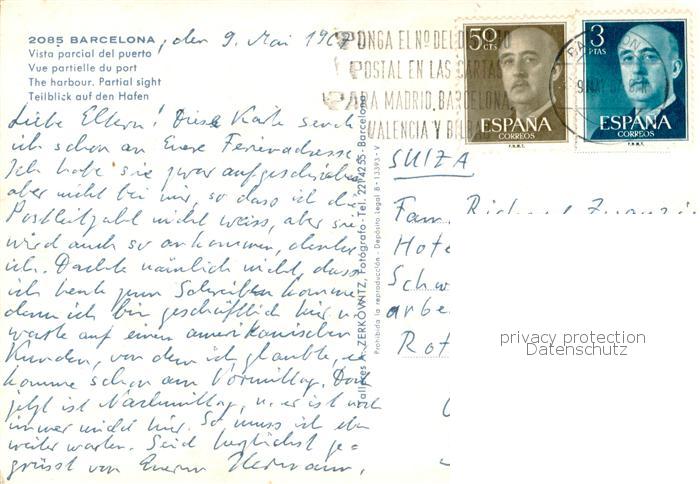 2085 BARCELONA, den 9. Mai 196
Vista parcial del puerto
Vue partielle du port
The harbour. Partial sight
Teilblick auf den Hafen
Liebe Eltern! Diese Karte sende
ich schon an Eure Ferienadresse.
Ich habe sie zwar aufgeschrieben
aber nicht bei mir, so dass ich die
Postleitzahl nicht weiss, aber sie
wird auch so ankommen, denke
ich. Dachte nämlich nicht, dass
ich heute zum Schreiben komme
denn ich bin geschäftlich hier u.
warte auf einen amerikanischen
Kunden, von dem ich glaubte, er
komme schon am Vormittag. Doch
jetzt ist Nachmittag, u. er ist noch
immer nicht hier. So muss ich eben
weiter warten. Seid herzlichst ge=
grüsst von Eurem Hermann.
Talleres A. ZERKOWITZ, Fotógrafo - Tel. 221 42 55 - Barcelona
Prohibida la reproducción - Depósito Legal B - 13393 - V
PONGA EL Nº DEL DISTRITO
POSTAL EN LAS CARTAS
PARA MADRID, BARCELONA,
VALENCIA Y BILBAO
50
CTS
ESPAÑA
CORREOS
F.N.M.T.
3
PTAS
ESPAÑA
CORREOS
F.N.M.T.
BARCELONA
9 MAY
SUIZA
Fam. Richard
Hote
Schw
arbe
Rot
privacy protection
Datenschutz